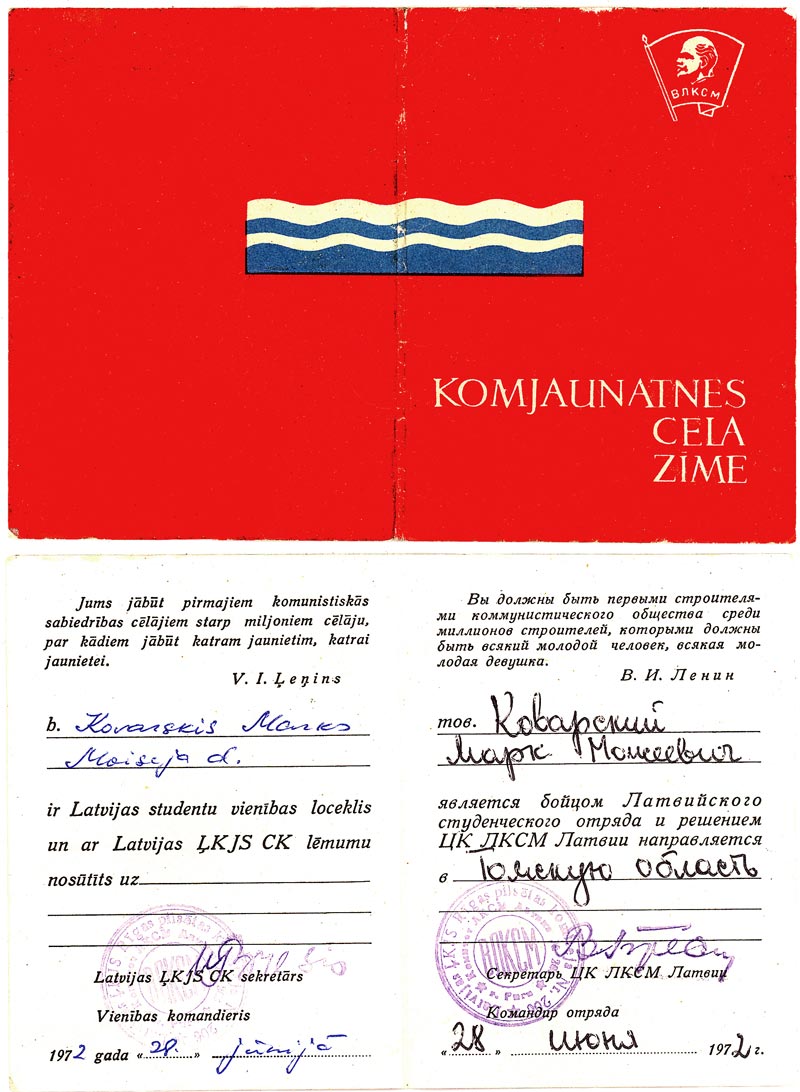 ВЛКСМ
KOMJAUNATNES
CEĻA
ZĪME
Jums jābūt pirmajiem komunistiskās
sabiedrības cēlājiem starp miljoniem cēlāju,
par kādiem jābūt katram jaunietim, katrai
jaunietei.
V. I. Ļeņins
b. Kovarskis Marks
Moiseja d.
ir Latvijas studentu vienības loceklis
un ar Latvijas ĻKJS CK lēmumu
nosūtīts uz
Latvijas ĻKJS CK sekretārs
Vienības komandieris
1972 gada „28.“ jūnijā
Вы должны быть первыми строителя-
ми коммунистического общества среди
миллионов строителей, которыми должны
быть всякий молодой человек, всякая мо-
лодая девушка.
В. И. Ленин
тов. Коварский
Марк Моисеевич
является бойцом Латвийского
студенческого отряда и решением
ЦК ЛКСМ Латвии направляется
в Томскую область
ВЛКСМ
г. Рига
Секретарь ЦК ЛКСМ Латвии
Командир отряда
„28“ июня 1972 г.